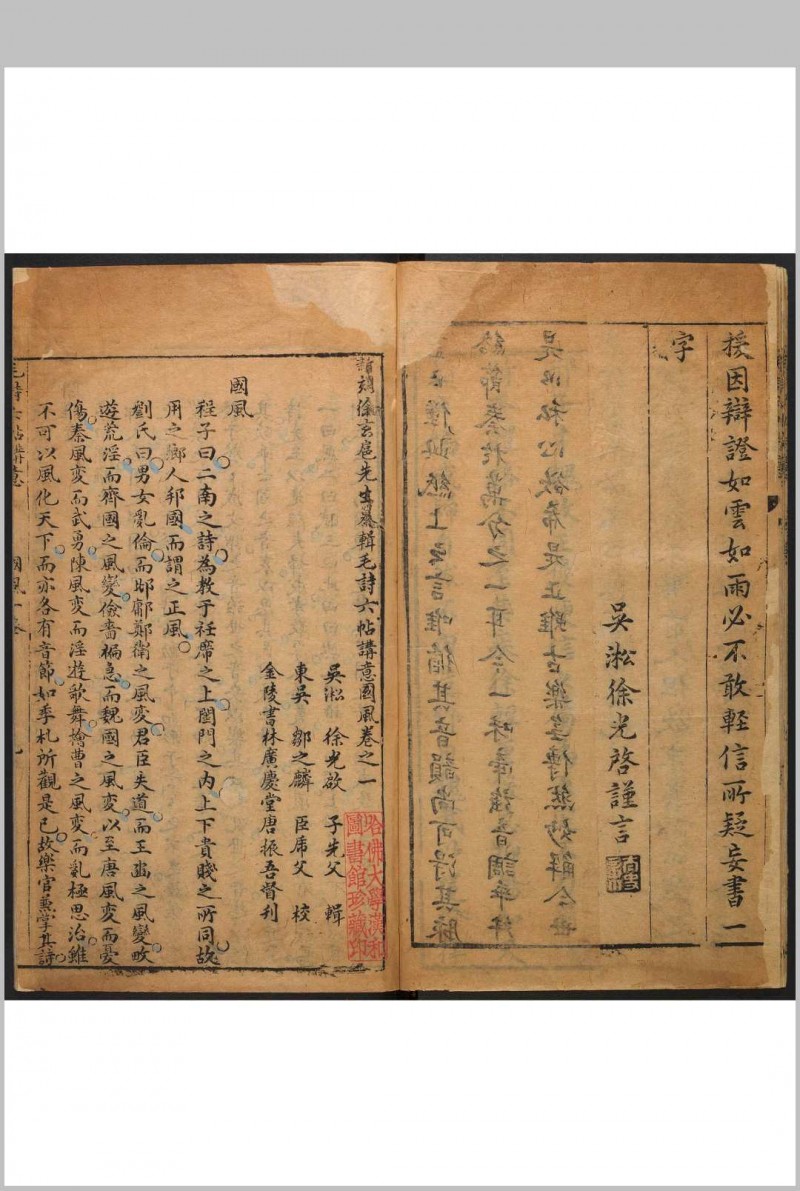 援因辯證如雲如雨必不敢輕信所疑妄書一
字
吳淞徐光啓謹言
徐玄扈先生纂輯毛詩六帖講意國風卷之一
吳淞 徐光啟 子先父 輯
東吳 鄒之麟 臣虎父 校
金陵書林廣慶堂唐振吾督刊
國風
程子曰二南之詩為教于衽席之上閨門之內上下貴賤之所同故
用之鄉人邦國而謂之正風
劉氏曰男女亂倫而邶鄘鄭衛之風変君臣失道而王豳之風變畋
遊荒淫而齊國之風變儉嗇褊急而魏國之風変以至唐風変而憂
傷秦風変而武勇陳風変而淫遊歌舞檜曹之風変而亂極思治雖
不可以風化天下而亦各有音節如季札所觀是已故樂官兼掌其詩
國風一卷
哈佛大學漢和
圖書館珍藏印